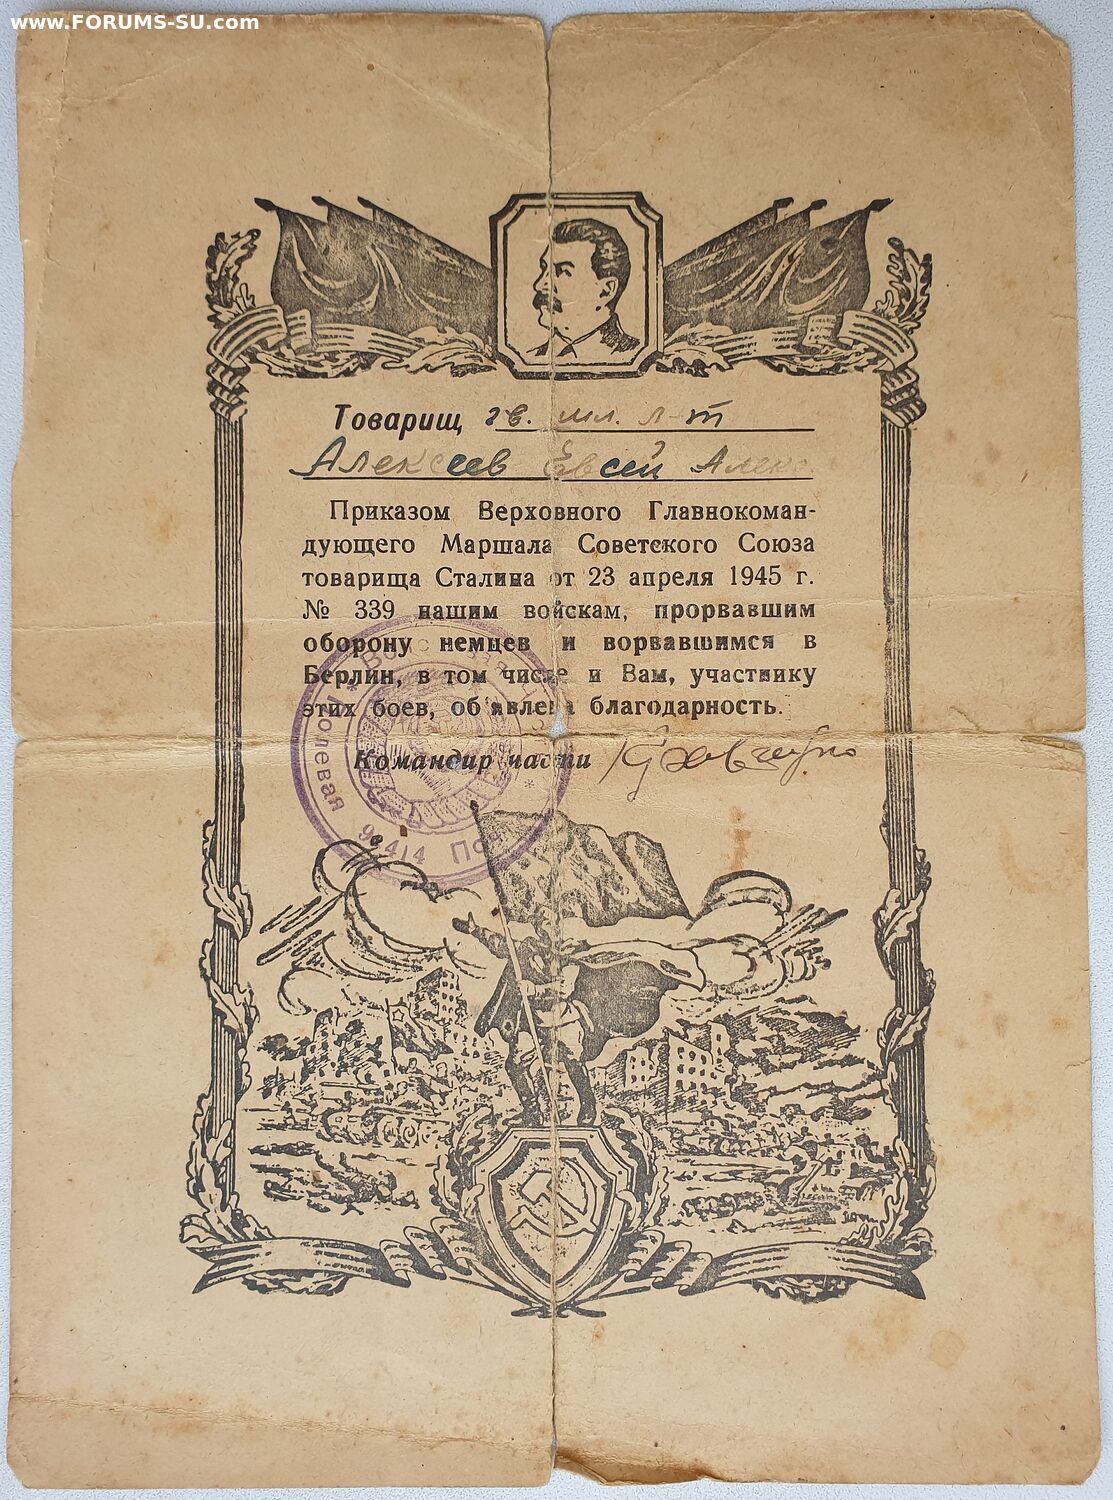 www.FORUMS-SU.com
Товарищ гв. мл. л-т
Алексеев Евсей Алекс
Приказом Верховного Главнокоман-
дующего Маршала Советского Союза
товарища Сталина от 23 апреля 1945 г.
№ 339 нашим войскам, прорвавшим
оборону немцев и ворвавшимся в
Берлин, в том числе и Вам, участнику
этих боев, об'явлена благодарность.
Командир части
Полевая